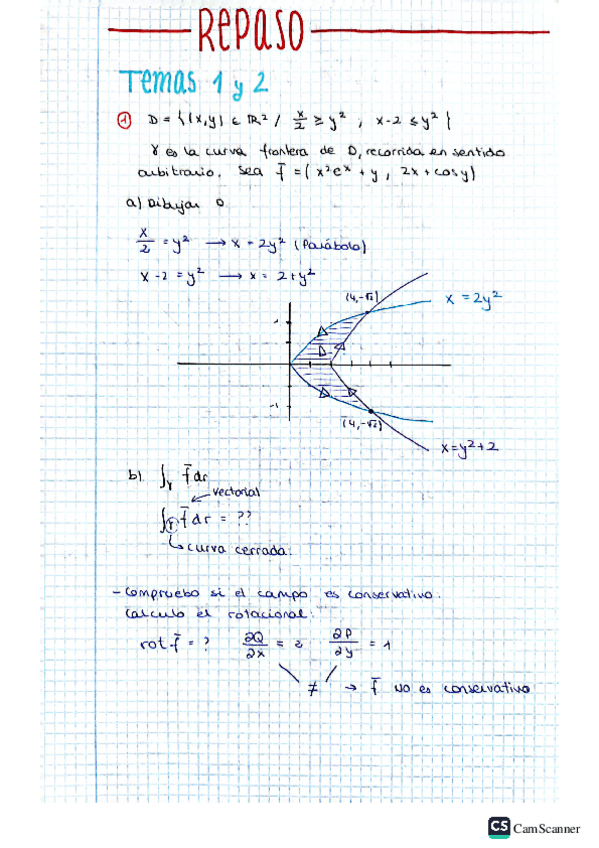 REPASO
Temas 1 y 2
① D = {(x,y) ∈ ℝ² / x/2 ≥ y² , x-2 ≤ y² }
γ es la curva frontera de D, recorrida en sentido
arbitrario. Sea f̄ = ( x²eˣ + y , 2x + cosy)
a) Dibujar D
x/2 = y² → x = 2y² (Parábola)
x - 2 = y² → x = 2 + y²
(4,-√2)
x = 2y²
D
-1
(4,-√2)
x = y²+2
b) ∫γ f̄ dr
vectorial
∫γ f̄ dr = ??
↳ curva cerrada.
- Compruebo si el campo es conservativo.
Calculo el rotacional:
rot f̄ = ? ∂Q/∂x = 2 ∂P/∂y = 1
≠ → f̄ no es conservativo
CS CamScanner